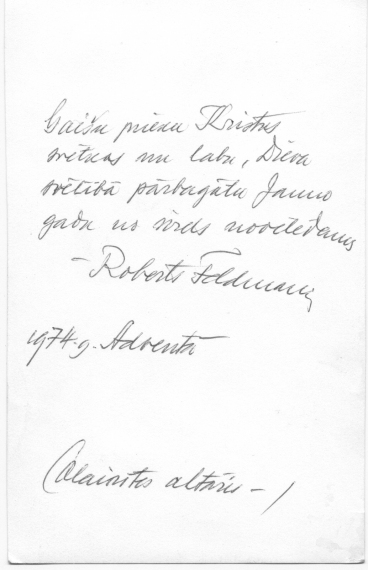 Gaišu prieku Kristus
svētkos un labu, Dieva
svētībā pārbagātu Jauno
gadu no sirds novēlēdams
- Roberts Feldmanis
1974. g. Adventā
altāris -